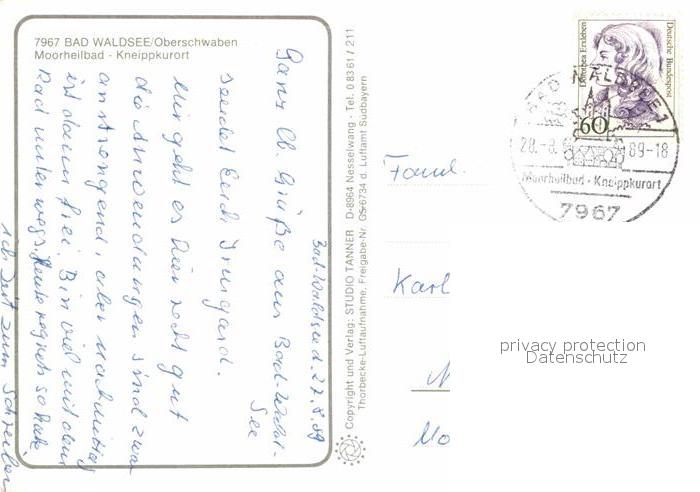 7967 BAD WALDSEE/Oberschwaben
Moorheilbad - Kneippkurort
Bad-Waldsee d. 27.8.89
Ganz lb. Grüße aus Bad-Wald-
See
sendet Euch Irmgard.
Mir geht es hier recht gut
die Anwendungen sind zwar
anstrengend, aber nachmittag
ist dann frei. Bin viel mit dem
Rad unterwegs. Heute regnets so habe
ich Zeit zum Schreiben
Copyright und Verlag: STUDIO TANNER D-8964 Nesselwang - Tel. 0 83 61 / 211
Thorbecke-Luftaufnahme, Freigabe-Nr. GS-6734 d. Luftamt Südbayern
Dorothea Erxleben
Deutsche Bundespost
60
BAD WALDSEE 1
28.-8. 89-18
Moorheilbad - Kneippkurort
7967
Faml.
Karl
privacy protection
Datenschutz